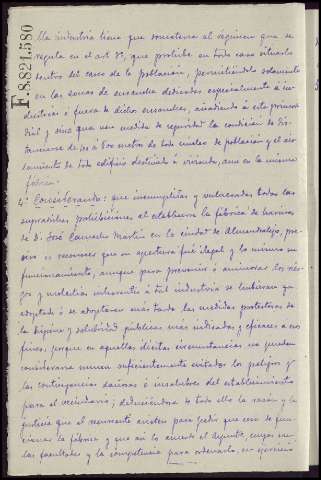 F.8.821.580
lla industria tiene que someterse al regimen que se
regula en el art 8º, que prohibe en todo caso situarlo
dentro del casco de la población, permitiéndolo solamente
en las zonas de ensanche dedicadas especialmente a in-
dustrias ó fuera de dichos ensanches, añadiendo a esta primor-
dial y sine qua non medida de seguridad la condición de dis-
tanciarse de 100 a 500 metros de todo núcleo de población y el ais-
lamiento de todo edificio destinado á vivienda, aun en la misma
fábrica.
4º Considerando: que incumplidas y vulneradas todas las
supradichas prohibiciones al establecerse la fábrica de harinas
de D. José Camacho Martin en la ciudad de Almendralejo, pre-
ciso es reconocer que su apertura fué ilegal y lo mismo su
funcionamiento, aunque para prevenir ó aminorar los ries-
gos y molestias inherentes á tal industria se hubieran ya
adoptado ó se adoptaren más tarde las medidas protectoras de
la higiene y salubridad públicas mas indicadas y eficaces a esos
fines, porque en aquellas ilícitas circunstancias no pueden
considerarse nunca suficientemente evitados los peligros y
las contingencias dañosas ó insalubres del establecimiento
para el vecindario; deduciéndose de todo ello la razón y la
justicia que al recurrente asisten para pedir que cese de fun-
cionar la fábrica y que asi lo acuerde el Ayunto, cuyas
las facultades y la competencia para ordenarlo, en ejercicio